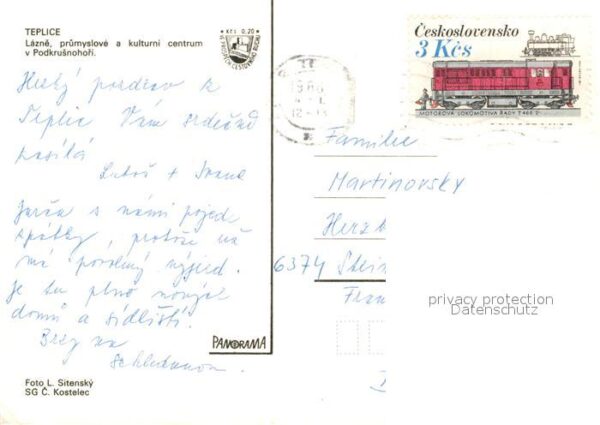 TEPLICE
Lázně, průmyslové a kulturní centrum
v Podkrušnohoří.
Kčs 0,20
Hezký pozdrav z
Teplic Vám srdečně
posílá
Luboš + Ivana
Jarča s námi pojede
zpátky, protože už
má povolený výjezd.
Je tu plno nových
domů a sídlišť.
Brzy na
shledanou.
Foto L. Sitenský
SG Č. Kostelec
PANORAMA
Československo
3 Kčs
MOTOROVÁ LOKOMOTIVA ŘADY T 466.2
Familie
Martinovsky
Herzb
6374 Stein
privacy protection
Datenschutz